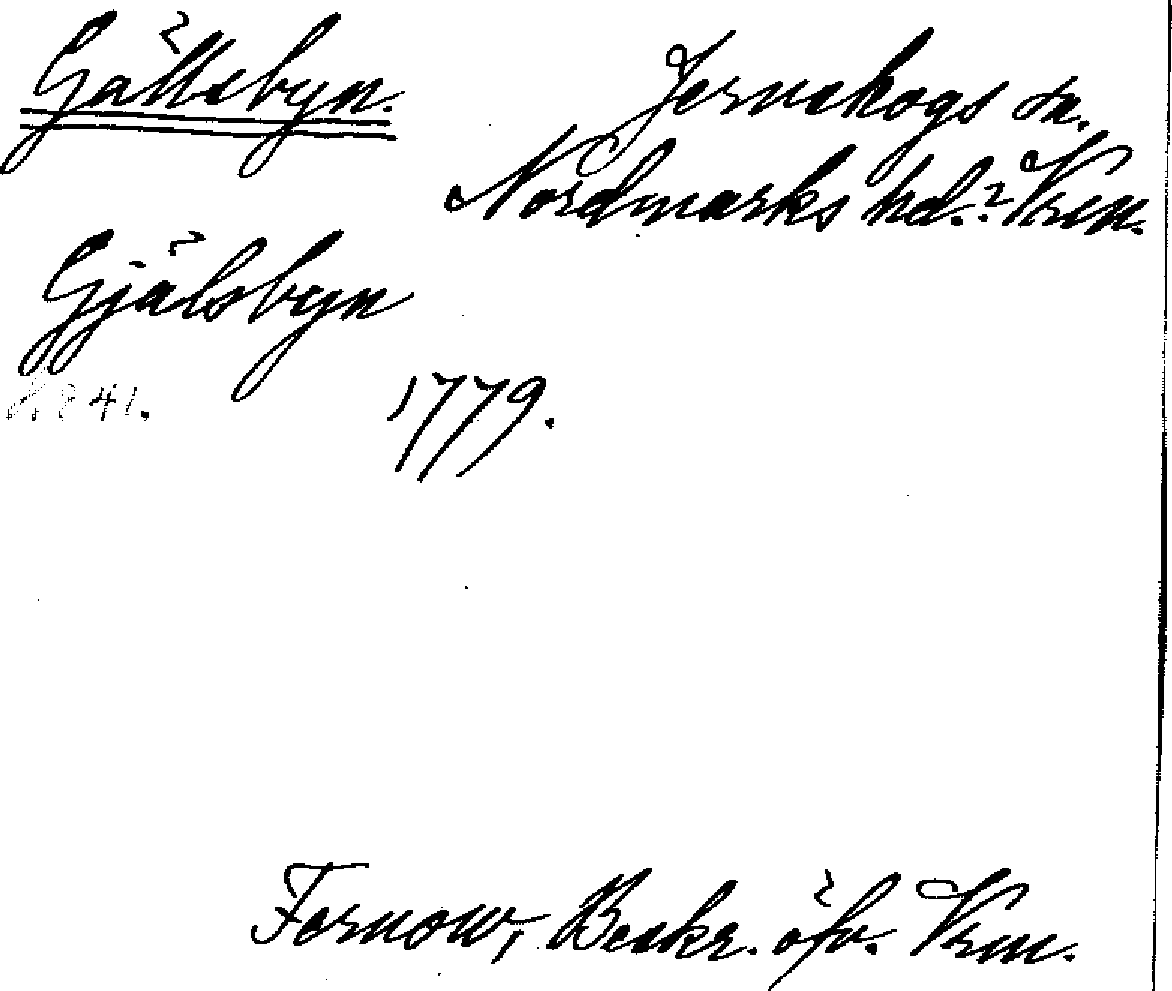 Gällsbyn.
Jernskogs sn.
Nordmarks hd.? Vrm.
Gjälsbyn
1779.
Fernow, Beskr. öfv. Vrm.